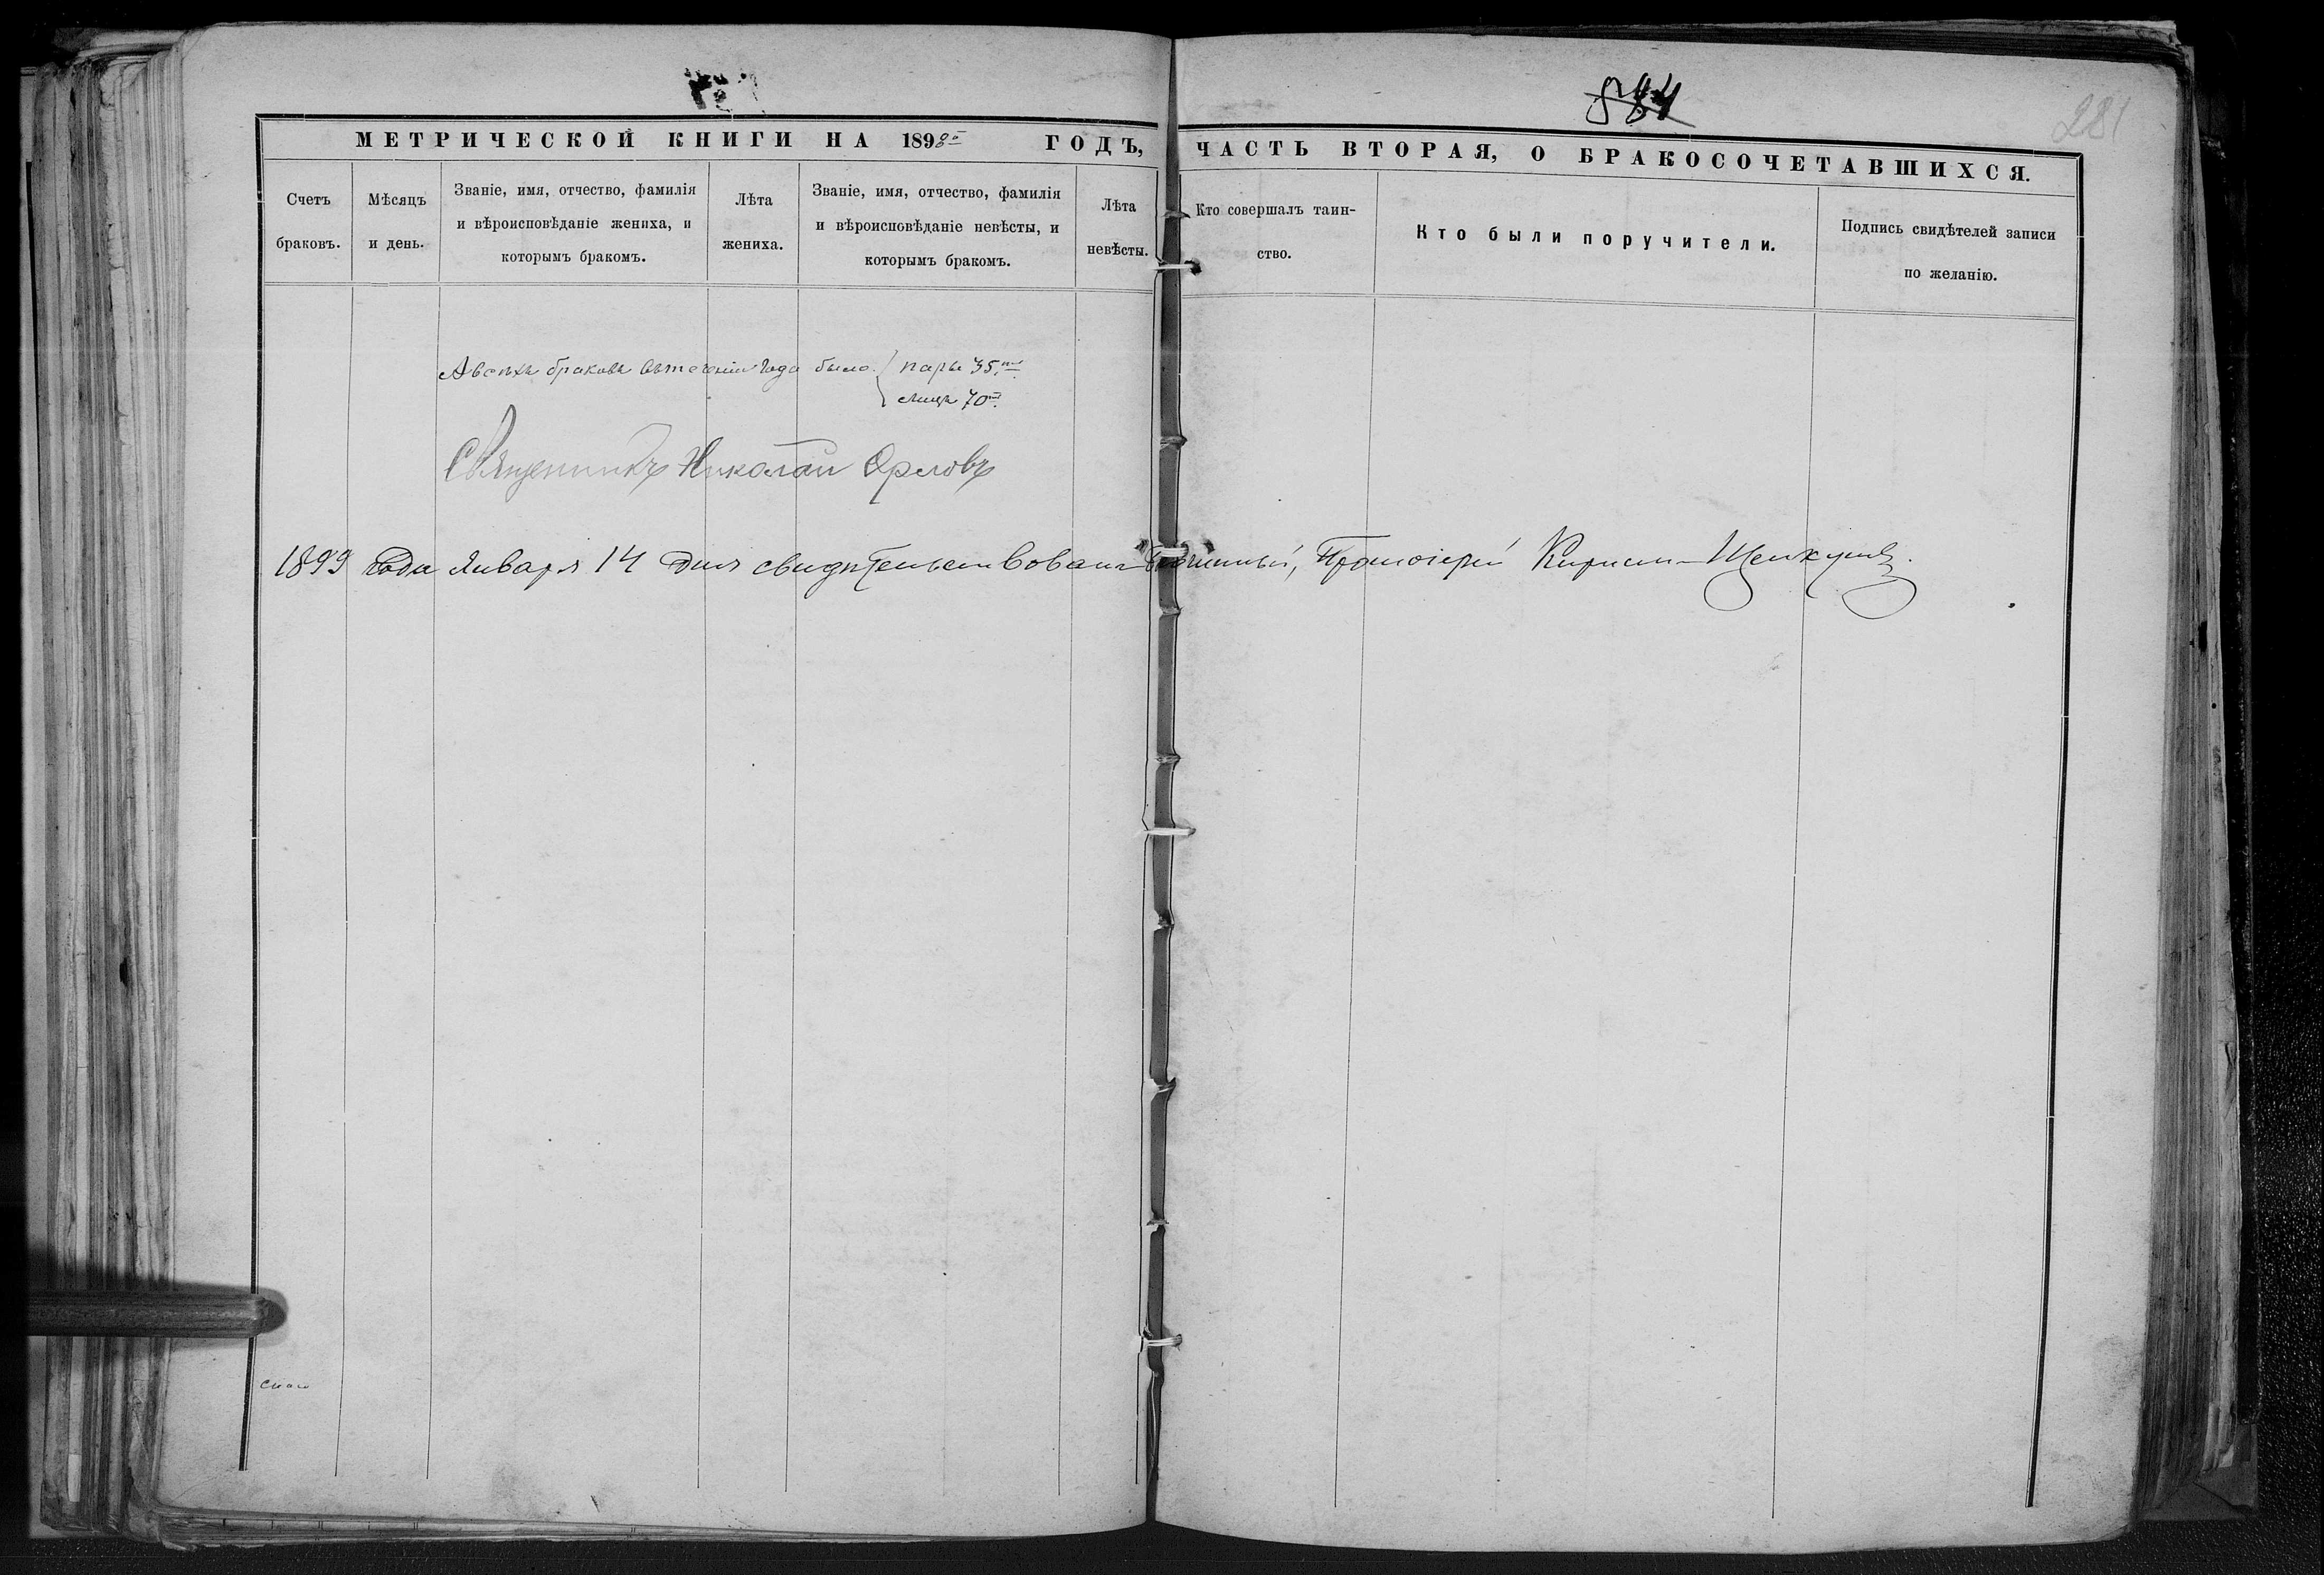 544
281
МЕТРИЧЕСКОЙ КНИГИ НА 1898й ГОДЪ, ЧАСТЬ ВТОРАЯ, О БРАКОСОЧЕТАВШИХСЯ.
Счетъ браковъ.
Мѣсяцъ и день.
Званіе, имя, отчество, фамилія
и вѣроисповѣданіе жениха, и
которымъ бракомъ.
Лѣта жениха.
Званіе, имя, отчество, фамилія
и вѣроисповѣданіе невѣсты, и
которымъ бракомъ.
Лѣта невѣсты.
Кто совершалъ таин-
ство.
Кто были поручители.
Подпись свидѣтелей записи
по желанію.
А всѣхъ браковъ втеченіи года было паръ 35.
лицъ 70.
Священникъ Николай Орловъ
1899 года Января 14 дня свидѣтельствовалъ Протоіерей Кирилл